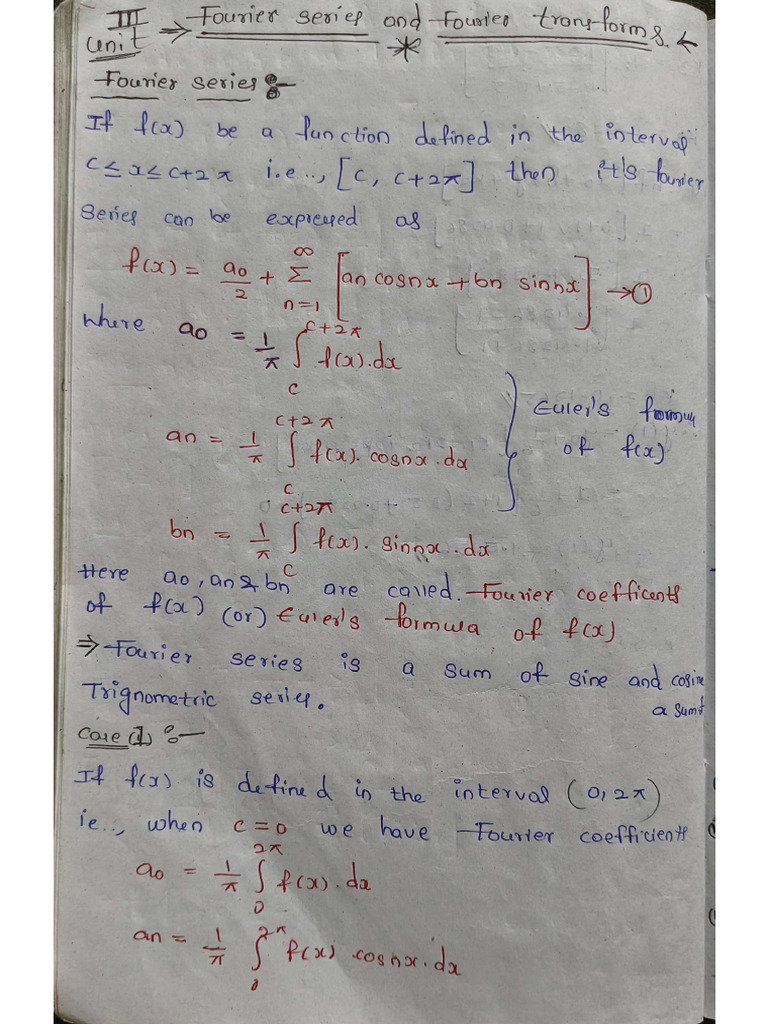 III unit ⇒ Fourier series and Fourier transforms. ←
*
Fourier series :-
If f(x) be a function defined in the interval
c ≤ x ≤ c+2π i.e.., [c, c+2π] then it's fourier
series can be expressed as
f(x) = a0/2 + ∞Σn=1 [an cosnx + bn sinnx] → ①
where a0 = 1/π ∫c^c+2π f(x).dx
an = 1/π ∫c^c+2π f(x). cosnx.dx
Euler's formula
of f(x)
bn = 1/π ∫c^c+2π f(x). sinnx.dx
Here a0, an & bn are called. Fourier coefficents
of f(x) (or) Euler's formula of f(x)
⇒ Fourier series is a sum of sine and cosine
Trignometric series.
a sum
Case (1) :-
If f(x) is defined in the interval (0, 2π)
ie.., when c=0 we have Fourier coefficients
a0 = 1/π ∫0^2π f(x).dx
an = 1/π ∫0^2π f(x).cosnx.dx